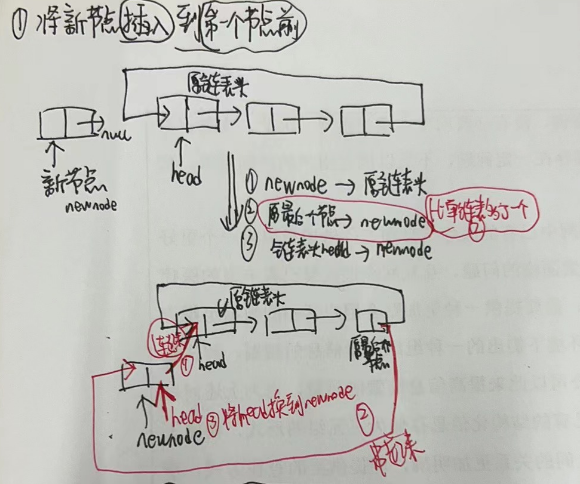 ① 将新节点插入到第一个节点前
原链表头
null
新节点
newnode
head
① newnode → 原链表头
② 原最后一个节点 → newnode 比单链表多了一个②
③ 链表头head → newnode
原链表头
连起来
①
head
原最后一个节点
head ③ 将head换到newnode
newnode
②
串起来